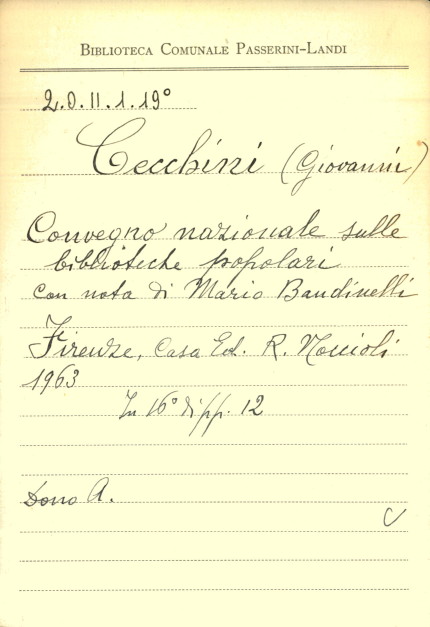 BIBLIOTECA COMUNALE PASSERINI-LANDI
2.0.II.1.19°
Cecchini (Giovanni)
Convegno nazionale sulle
biblioteche popolari
con nota di Mario Bandinelli
Firenze, Casa Ed. R. Noccioli
1963
In 16° di pp. 12
Dono A.
C